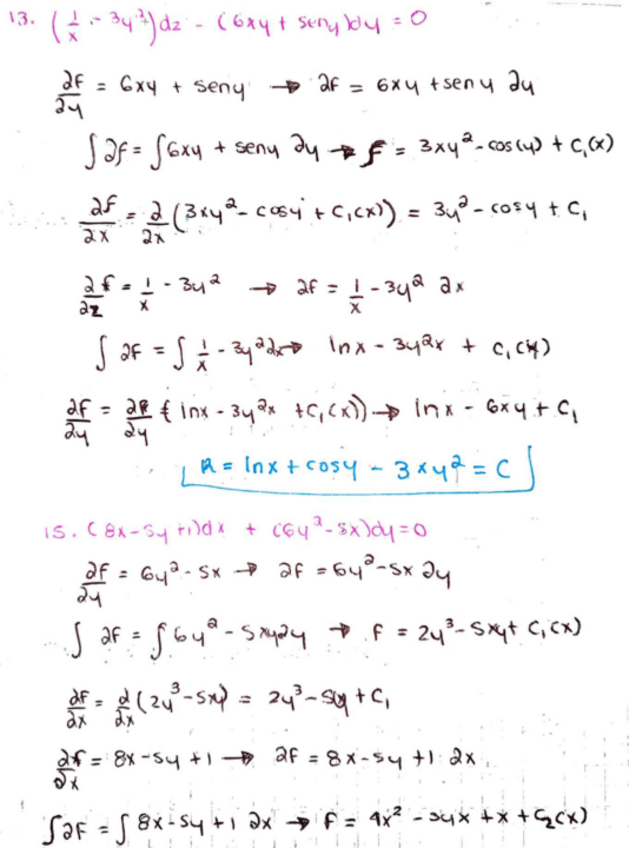 13. (1/x - 3y²)dz - (6xy + seny)dy = 0
∂f/∂y = 6xy + seny → ∂f = 6xy + seny ∂y
∫∂f = ∫6xy + seny ∂y → f = 3xy² - cos(y) + C₁(x)
∂f/∂x = ∂/∂x (3xy² - cosy + C₁(x)) = 3y² - cosy + C₁
∂f/∂z = 1/x - 3y² → ∂f = 1/x - 3y² ∂x
∫∂f = ∫1/x - 3y²∂x → lnx - 3y²x + C₁(x)
∂f/∂y = ∂/∂y (lnx - 3y²x + C₁(x)) → lnx - 6xy + C₁
R = lnx + cosy - 3xy² = C
15. (8x-5y+1)dx + (6y²-5x)dy=0
∂f/∂y = 6y² - 5x → ∂f = 6y² - 5x ∂y
∫∂f = ∫6y² - 5xy∂y → f = 2y³ - 5xy + C₁(x)
∂f/∂x = ∂/∂x (2y³-5xy) = 2y³ - 5y + C₁
∂f/∂x = 8x - 5y + 1 → ∂f = 8x - 5y + 1 ∂x
∫∂f = ∫8x - 5y + 1 ∂x → f = 4x² - 5yx + x + C₂(x)